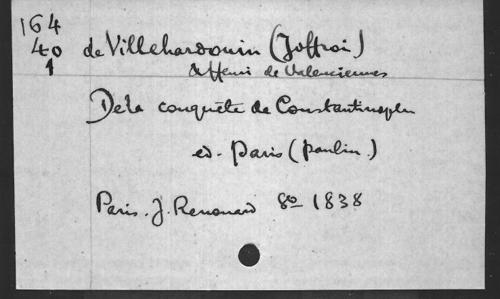 164
40
1
de Villehardouin (Joffroi)
& Henri de Valenciennes
De la conquête de Constantinople
ed. Paris (Paulin.)
Paris. J. Renouard 8º 1838